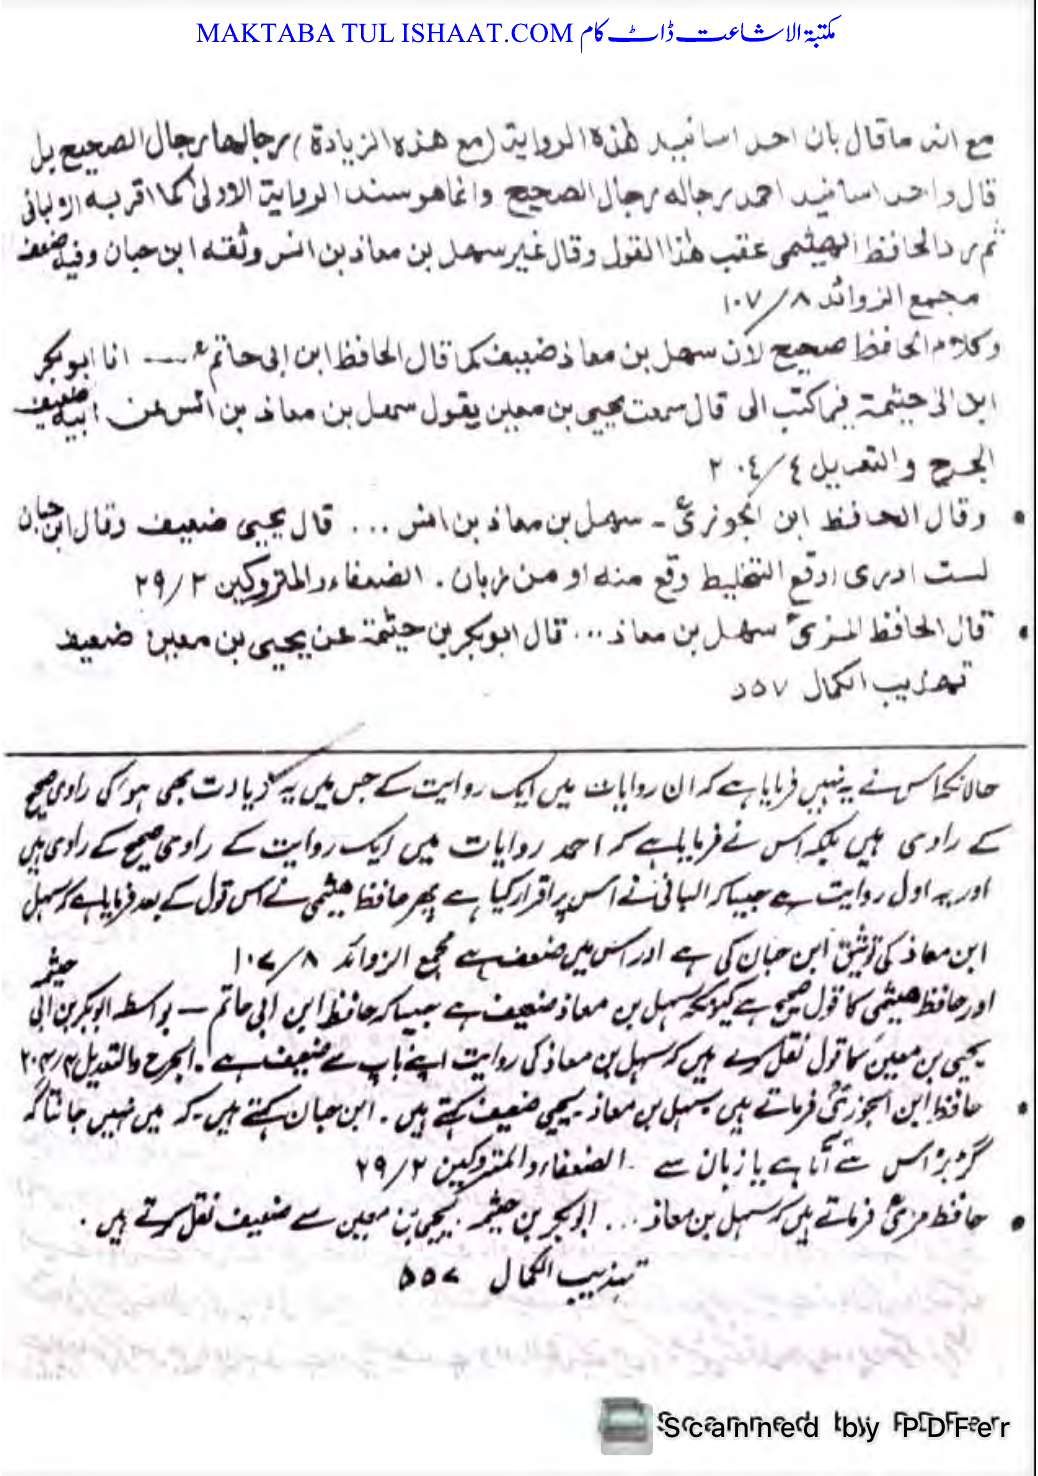 MAKTABA TUL ISHAAT.COM مکتبۃ الاشاعت ڈاٹ کام
مع انہ ما قال بان احد اسانید ھٰذہ الروایۃ (مع ھذہ الزیادۃ) رجالھا رجال الصحیح بل
قال واحد اسانید احمد رجالہ رجال الصحیح وانما ھو سند الروایۃ الاولیٰ کما اقر بہ الالبانی
ثم رد الحافظ الھیثمی عقب ھٰذا القول وقال غیر سھل بن معاذ بن انس وثقہ ابن حبان وفیہ ضعف
مجمع الزوائد ۸/۱۰۷
وکلام الحافظ صحیح لان سھل بن معاذ ضعیف کما قال الحافظ ابن ابی حاتم ؒ ---- انا ابو بکر
ابن ابی خیثمۃ فیما کتب الی قال سمعت یحیی بن معین یقول سھل بن معاذ بن انس عن ابیہ ضعیف
الجرح والتعدیل ٤/٢٠٤
• وقال الحافظ ابن الجوزی ؒ ـ سھل بن معاذ بن انس ... قال یحیی ضعیف وقال ابن حبان
لست ادری اوقع التخلیط وقع منہ او من زبان . الضعفاء والمتروکین ٢/٢٩
• قال الحافظ المزی ؒ سھل بن معاذ ... قال ابو بکر بن خیثمۃ عن یحیی بن معین: ضعیف
تھذیب الکمال ٥٥٧
حالانکہ اس نے یہ نہیں فرمایا ہے کہ ان روایات میں ایک روایت کے جس میں یہ زیادت بھی ہو کی راوی صحیح
کے راوی ہیں بلکہ اس نے فرمایا ہے کہ احمد روایات میں ایک روایت کے راوی صحیح کے راوی ہیں
اور یہ اول روایت ہے جیسا کہ البانی نے اس پر اقرار کیا ہے پھر حافظ ھیثمی نے اس قول کے بعد فرمایا ہے کہ سہل
ابن معاذ کی توثیق ابن حبان کی ہے اور اس میں ضعف ہے مجمع الزوائد ۸/۱۰۷
اور حافظ ھیثمی کا قول صحیح ہے کیونکہ سہل بن معاذ ضعیف ہے جیسا کہ حافظ ابن ابی حاتم – بواسطہ ابوبکر بن ابی خیثمہ
یحیی بن معین کا قول نقل کرتے ہیں کہ سہل بن معاذ کی روایت اپنے باپ سے ضعیف ہے . الجرح والتعدیل ۴/۲۰۴
• حافظ ابن الجوزی ؒ فرماتے ہیں سہل بن معاذ یحیی ضعیف کہتے ہیں . ابن حبان کہتے ہیں کہ میں نہیں جانتا کہ
گڑبڑ اس سے آتا ہے یا زبان سے . الضعفاء والمتروکین ۲/۲۹
• حافظ مزی ؒ فرماتے ہیں کہ سہل بن معاذ ... ابوبکر بن خیثمہ . یحیی بن معین سے ضعیف نقل کرتے ہیں .
تہذیب الکمال ۵۵۷
Scanned by PDFer